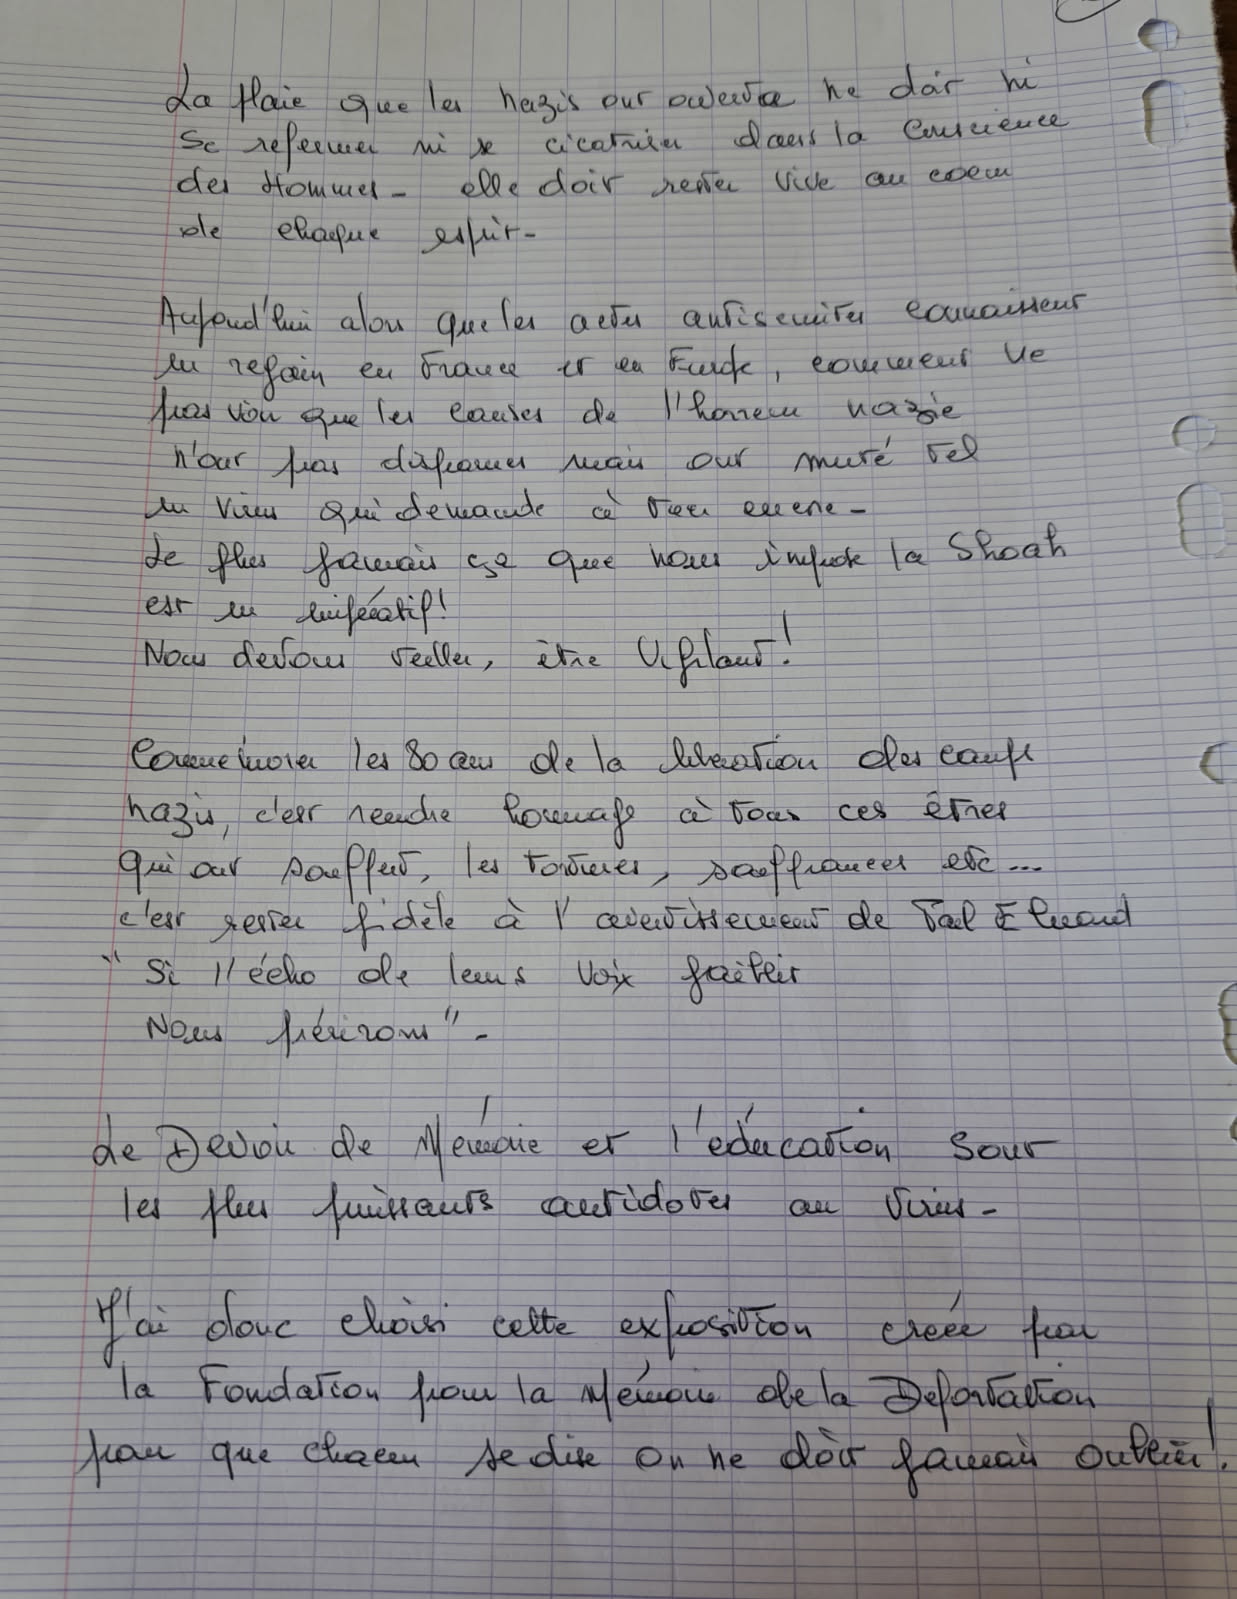 La plaie que les nazis ont ouverte ne doit ni
se refermer ni se cicatriser dans la conscience
des Hommes - elle doit rester vive au coeur
de chaque esprit -
Aujourd'hui alors que les actes antisemites connaissent
un regain en France et en Europe, comment ne
pas voir que les causes de l'horreur nazie
n'ont pas disparues mais ont muté tel
un virus qui demande à tuer encore -
Le plus jamais ça que nous impose la Shoah
est un impératif !
Nous devons veiller, être vigilant !
Commémorer les 80 ans de la liberation des camps
nazis, c'est rendre homage à tous ces êtres
qui ont souffert, les tortures, souffrances etc...
c'est rester fidèle à l'avertissement de Paul Eluard
" Si l'écho de leurs voix faiblit
Nous périrons" -
Le Devoir de Mémoire et l'éducation sont
les plus puissants antidotes au virus -
J'ai donc choisi cette exposition créée par
la Fondation pour la Mémoire de la Déportation
pour que chacun se dise on ne doit jamais oublier !